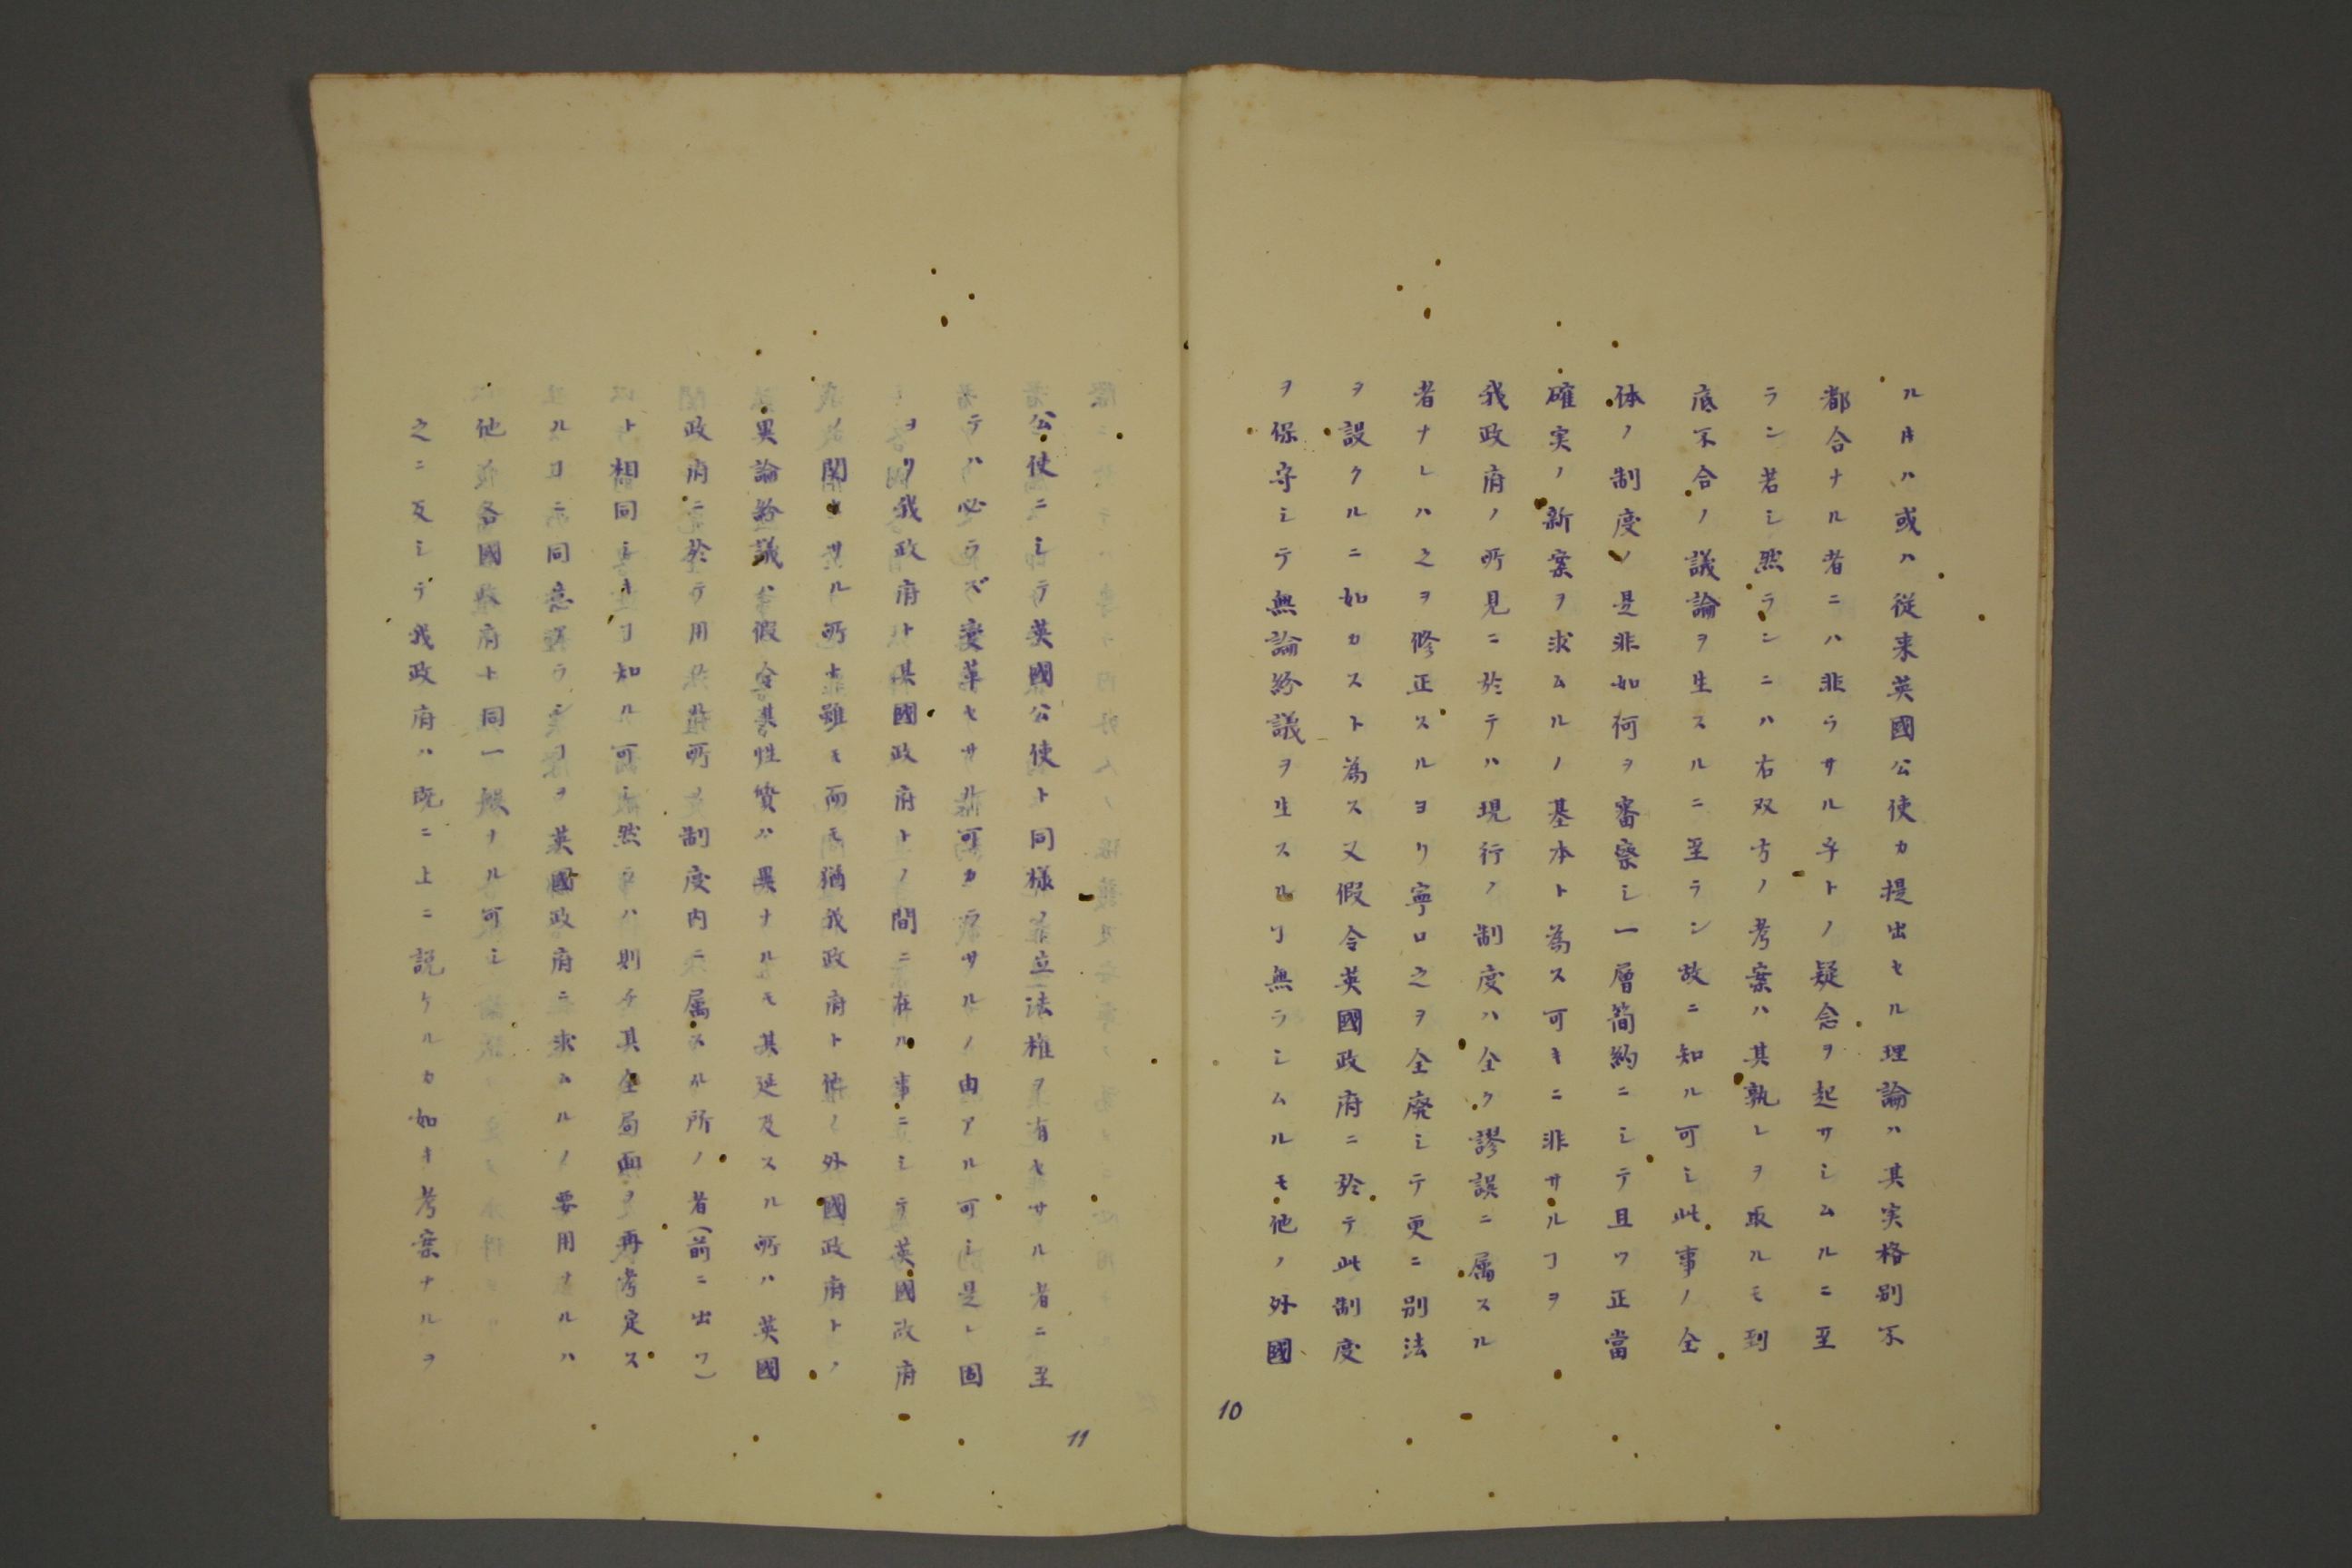 ル片ハ或ハ従来英國公使カ提出セル理論ハ其実格別不
都合ナル者ニハ非ラサル乎トノ疑念ヲ起サシムルニ至
ラン若シ然ランニハ右双方ノ考案ハ其孰レヲ取ルモ到
底不合ノ議論ヲ生スルニ至ラン故ニ知ル可シ此事ノ全
体ノ制度ノ是非如何ヲ審察シ一層簡約ニシテ且ツ正當
確実ノ新案ヲ求ムルノ基本ト為ス可キニ非サルヿヲ
我政府ノ所見ニ於テハ現行ノ制度ハ全ク謬誤ニ属スル
者ナレハ之ヲ修正スルヨリ寧ロ之ヲ全廃シテ更ニ別法
ヲ設クルニ如カスト為ス又假令英國政府ニ於テ此制度
ヲ保守シテ無論紛議ヲ生スルヿ無ラシムルモ他ノ外國
10
公使ニシテ英國公使ト同様ノ立法権ヲ有セサル者ニ至
テハ必ラズ変革セサル可カラサルノ由アル可シ是レ固
ヨリ我政府ト其國政府トノ間ニ在ル事ニシテ英國政府
ノ関セサル所ナ雖モ而モ猶我政府ト他ノ外國政府トノ
異論紛議ハ假令其性質ハ異ナルモ其延及スル所ハ英國
政府ニ於テ用 所ノ制度内ニ属スル所ノ者(前ニ出ツ)
ト相同シキヿ知ル可シ然ラハ則チ其全局面ヲ再考定ス
ルヿニ同意アランヿヲ英國政府ニ求ムルノ要用ナルハ
他ノ各國政府ト同一般ナル可シ
之ニ反シテ我政府ハ既ニ上ニ説ケルカ如キ考案ナルヲ
11